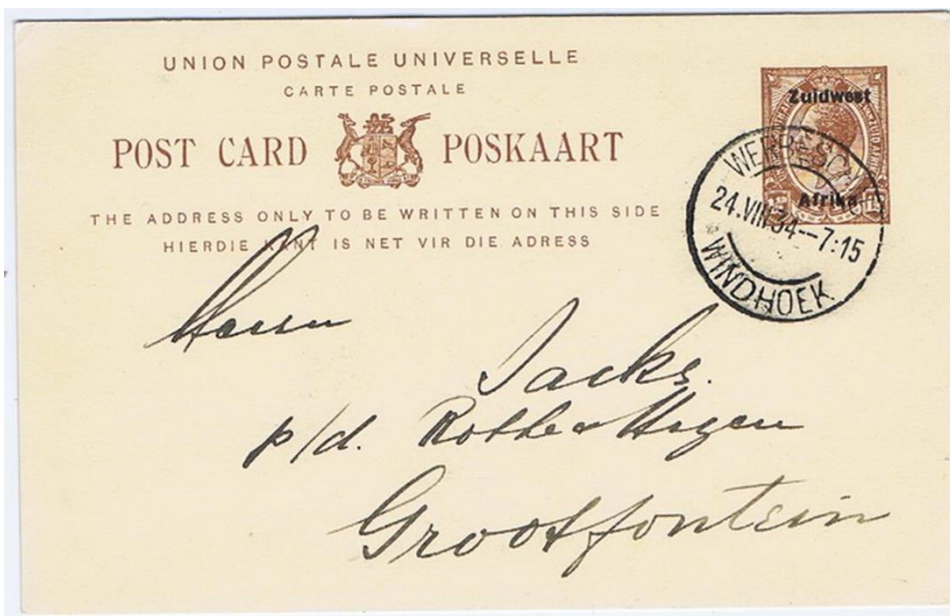 UNION POSTALE UNIVERSELLE
CARTE POSTALE
POST CARD POSKAART
THE ADDRESS ONLY TO BE WRITTEN ON THIS SIDE
HIERDIE KANT IS NET VIR DIE ADRESS
Zuidwest
Afrika
24.VIII.34--7:15
WINDHOEK
Herrn
Jacks.
p/d. Rothe
Grootfontein